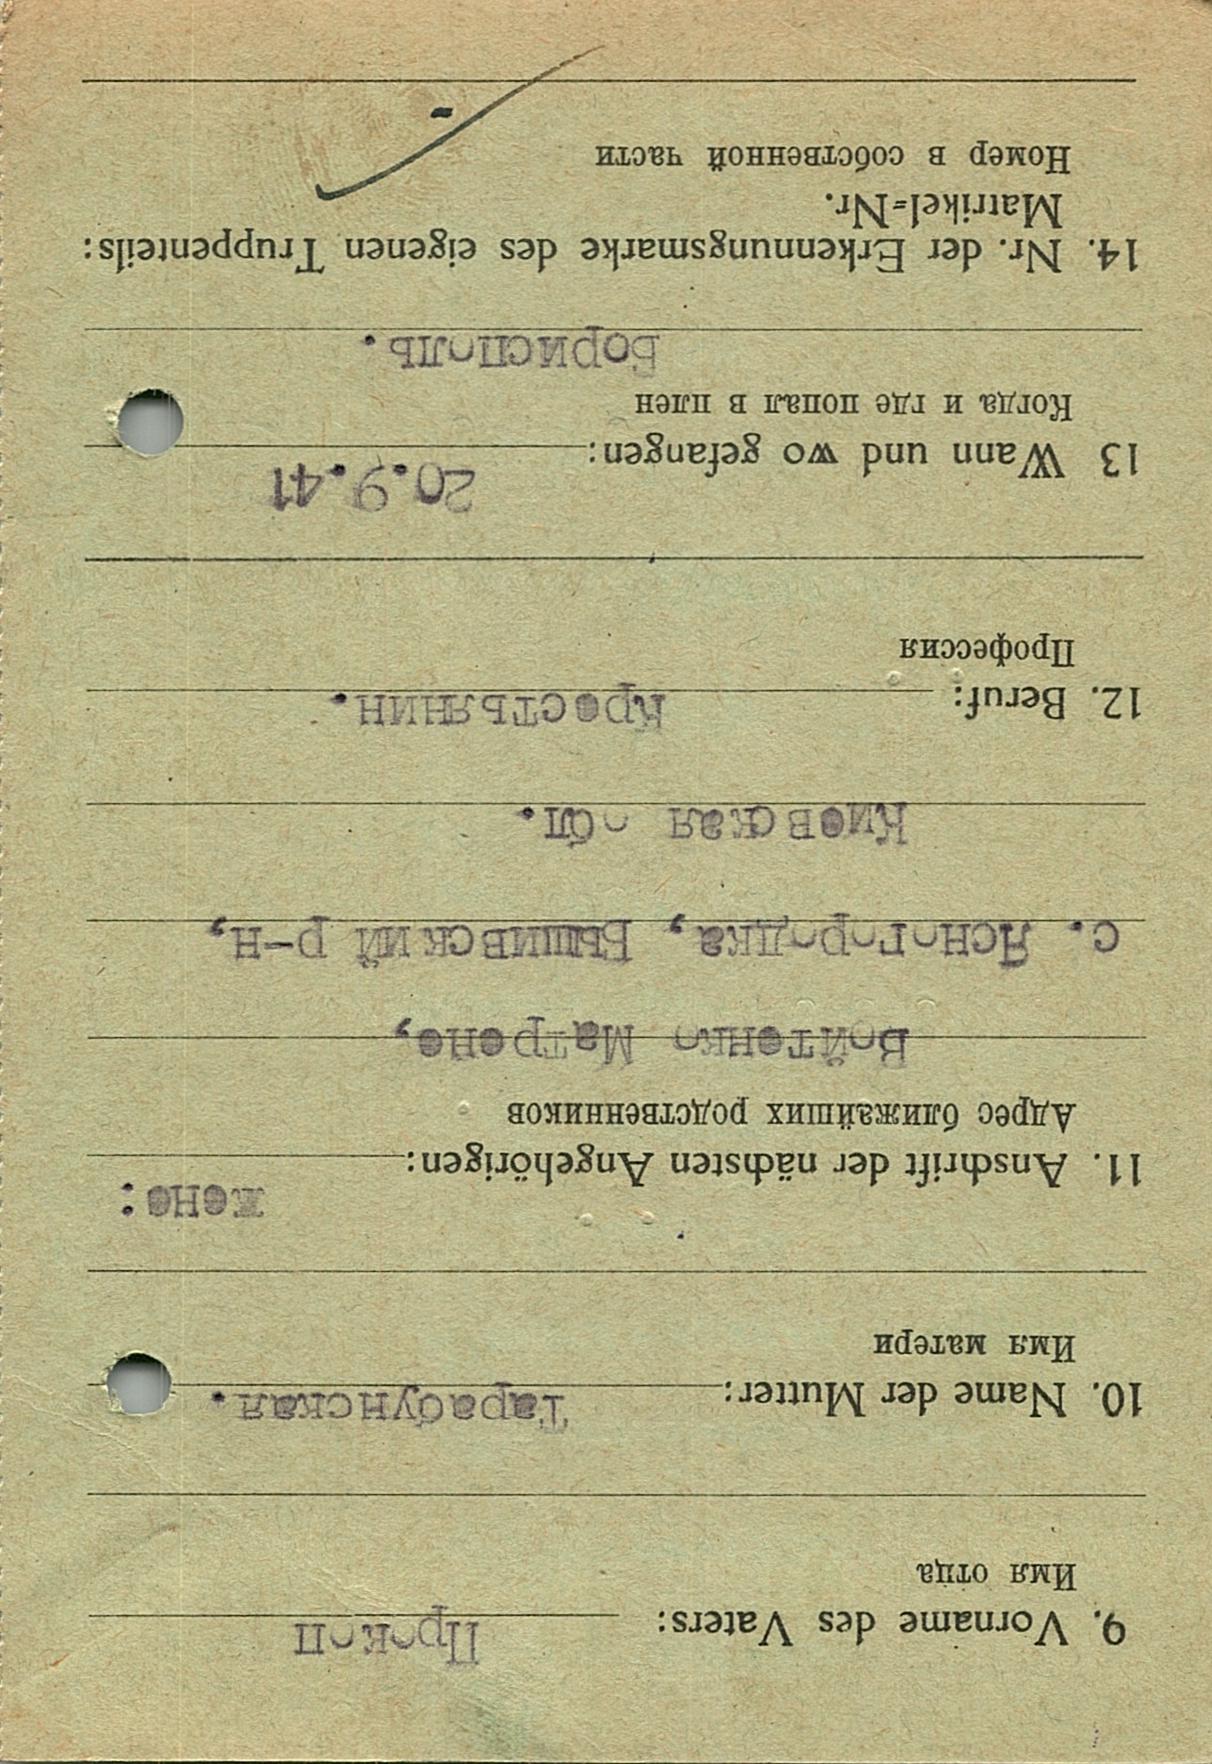 9. Vorname des Vaters: Прокоп
Имя отца
10. Name der Mutter: Тарабунская.
Имя матери
11. Anschrift der nächsten Angehörigen: жене:
Адрес ближайших родственников
Войтенко Матрене,
с. Ясногородка, Бышивский р-н,
Киевская обл.
12. Beruf: Крестьянин.
Профессия
13 Wann und wo gefangen: 20.9.41
Когда и где попал в плен
Борисполь.
14. Nr. der Erkennungsmarke des eigenen Truppenteils:
Matrikel=Nr.
Номер в собственной части
-